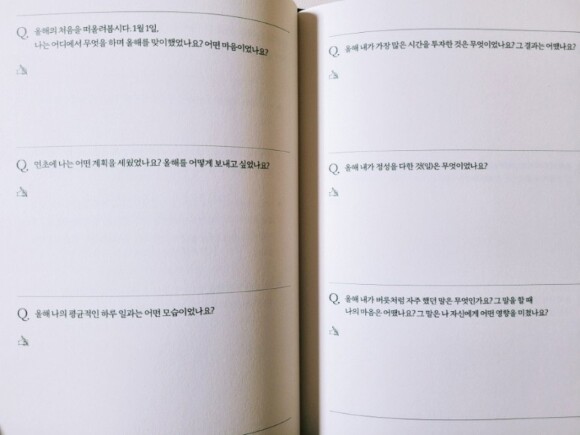 Q. 올해의 처음을 떠올려봅시다. 1월 1일,
나는 어디에서 무엇을 하며 올해를 맞이했었나요? 어떤 마음이었나요?
Q. 연초에 나는 어떤 계획을 세웠었나요? 올해를 어떻게 보내고 싶었나요?
Q. 올해 나의 평균적인 하루 일과는 어떤 모습이었나요?
Q. 올해 내가 가장 많은 시간을 투자한 것은 무엇이었나요? 그 결과는 어땠나요?
Q. 올해 내가 정성을 다한 것(일)은 무엇이었나요?
Q. 올해 내가 버릇처럼 자주 했던 말은 무엇인가요? 그 말을 할 때
나의 마음은 어땠나요? 그 말은 나 자신에게 어떤 영향을 미쳤나요?